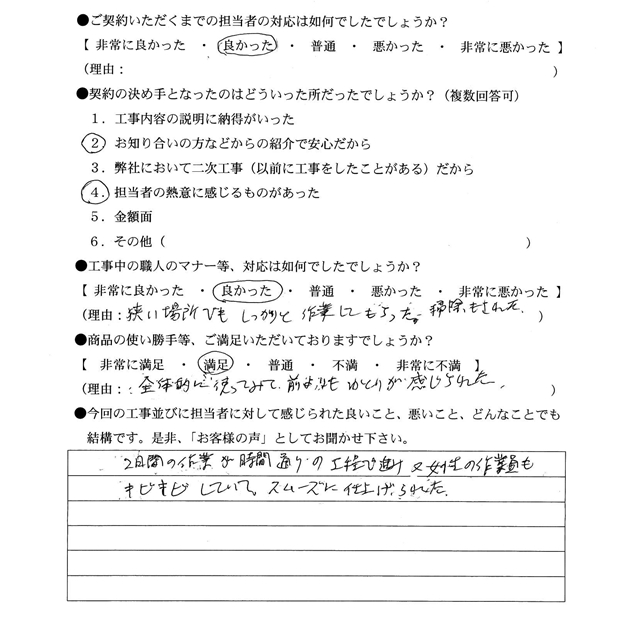 ●ご契約いただくまでの担当者の対応は如何でしたでしょうか？
【 非常に良かった ・ 良かった ・ 普通 ・ 悪かった ・ 非常に悪かった 】
（理由： ）
●契約の決め手となったのはどういった所だったでしょうか？（複数回答可）
1．工事内容の説明に納得がいった
2　お知り合いの方などからの紹介で安心だから
3．弊社において二次工事（以前に工事をしたことがある）だから
4．担当者の熱意に感じるものがあった
5．金額面
6．その他（ ）
●工事中の職人のマナー等、対応は如何でしたでしょうか？
【 非常に良かった ・ 良かった ・ 普通 ・ 悪かった ・ 非常に悪かった 】
（理由：狭い場所でも しっかりと 作業してもらった。掃除もされた. ）
●商品の使い勝手等、ご満足いただいておりますでしょうか？
【 非常に満足 ・ 満足 ・ 普通 ・ 不満 ・ 非常に不満 】
（理由：全体的に使ってみて、前よりも ゆとりが感じられた. ）
●今回の工事並びに担当者に対して感じられた良いこと、悪いこと、どんなことでも
結構です。是非、「お客様の声」としてお聞かせ下さい。
2日間の作業を時間通りの工程で進け 又女性の作業員も
キビキビしていて、スムーズに仕上げられた.